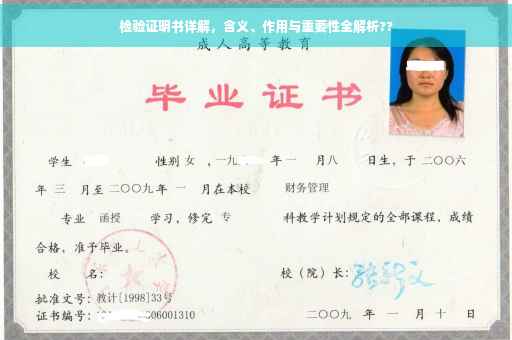 检验证明书详解，含义、作用与重要性全解析??
成人高等教育
毕业证书
学生 性别 女 ，一九 年 一 月八 日生，于 二〇〇六
年 三 月至 二〇〇九 年 一 月在本校 财务管理
专业 函授 学习，修完 专 科教学计划规定的全部课程，成绩
合格，准予毕业。
校 名： 校（院）长：
批准文号：教计[1998]33号
证书编号： 06001310 二〇〇九 年 一 月 十 日